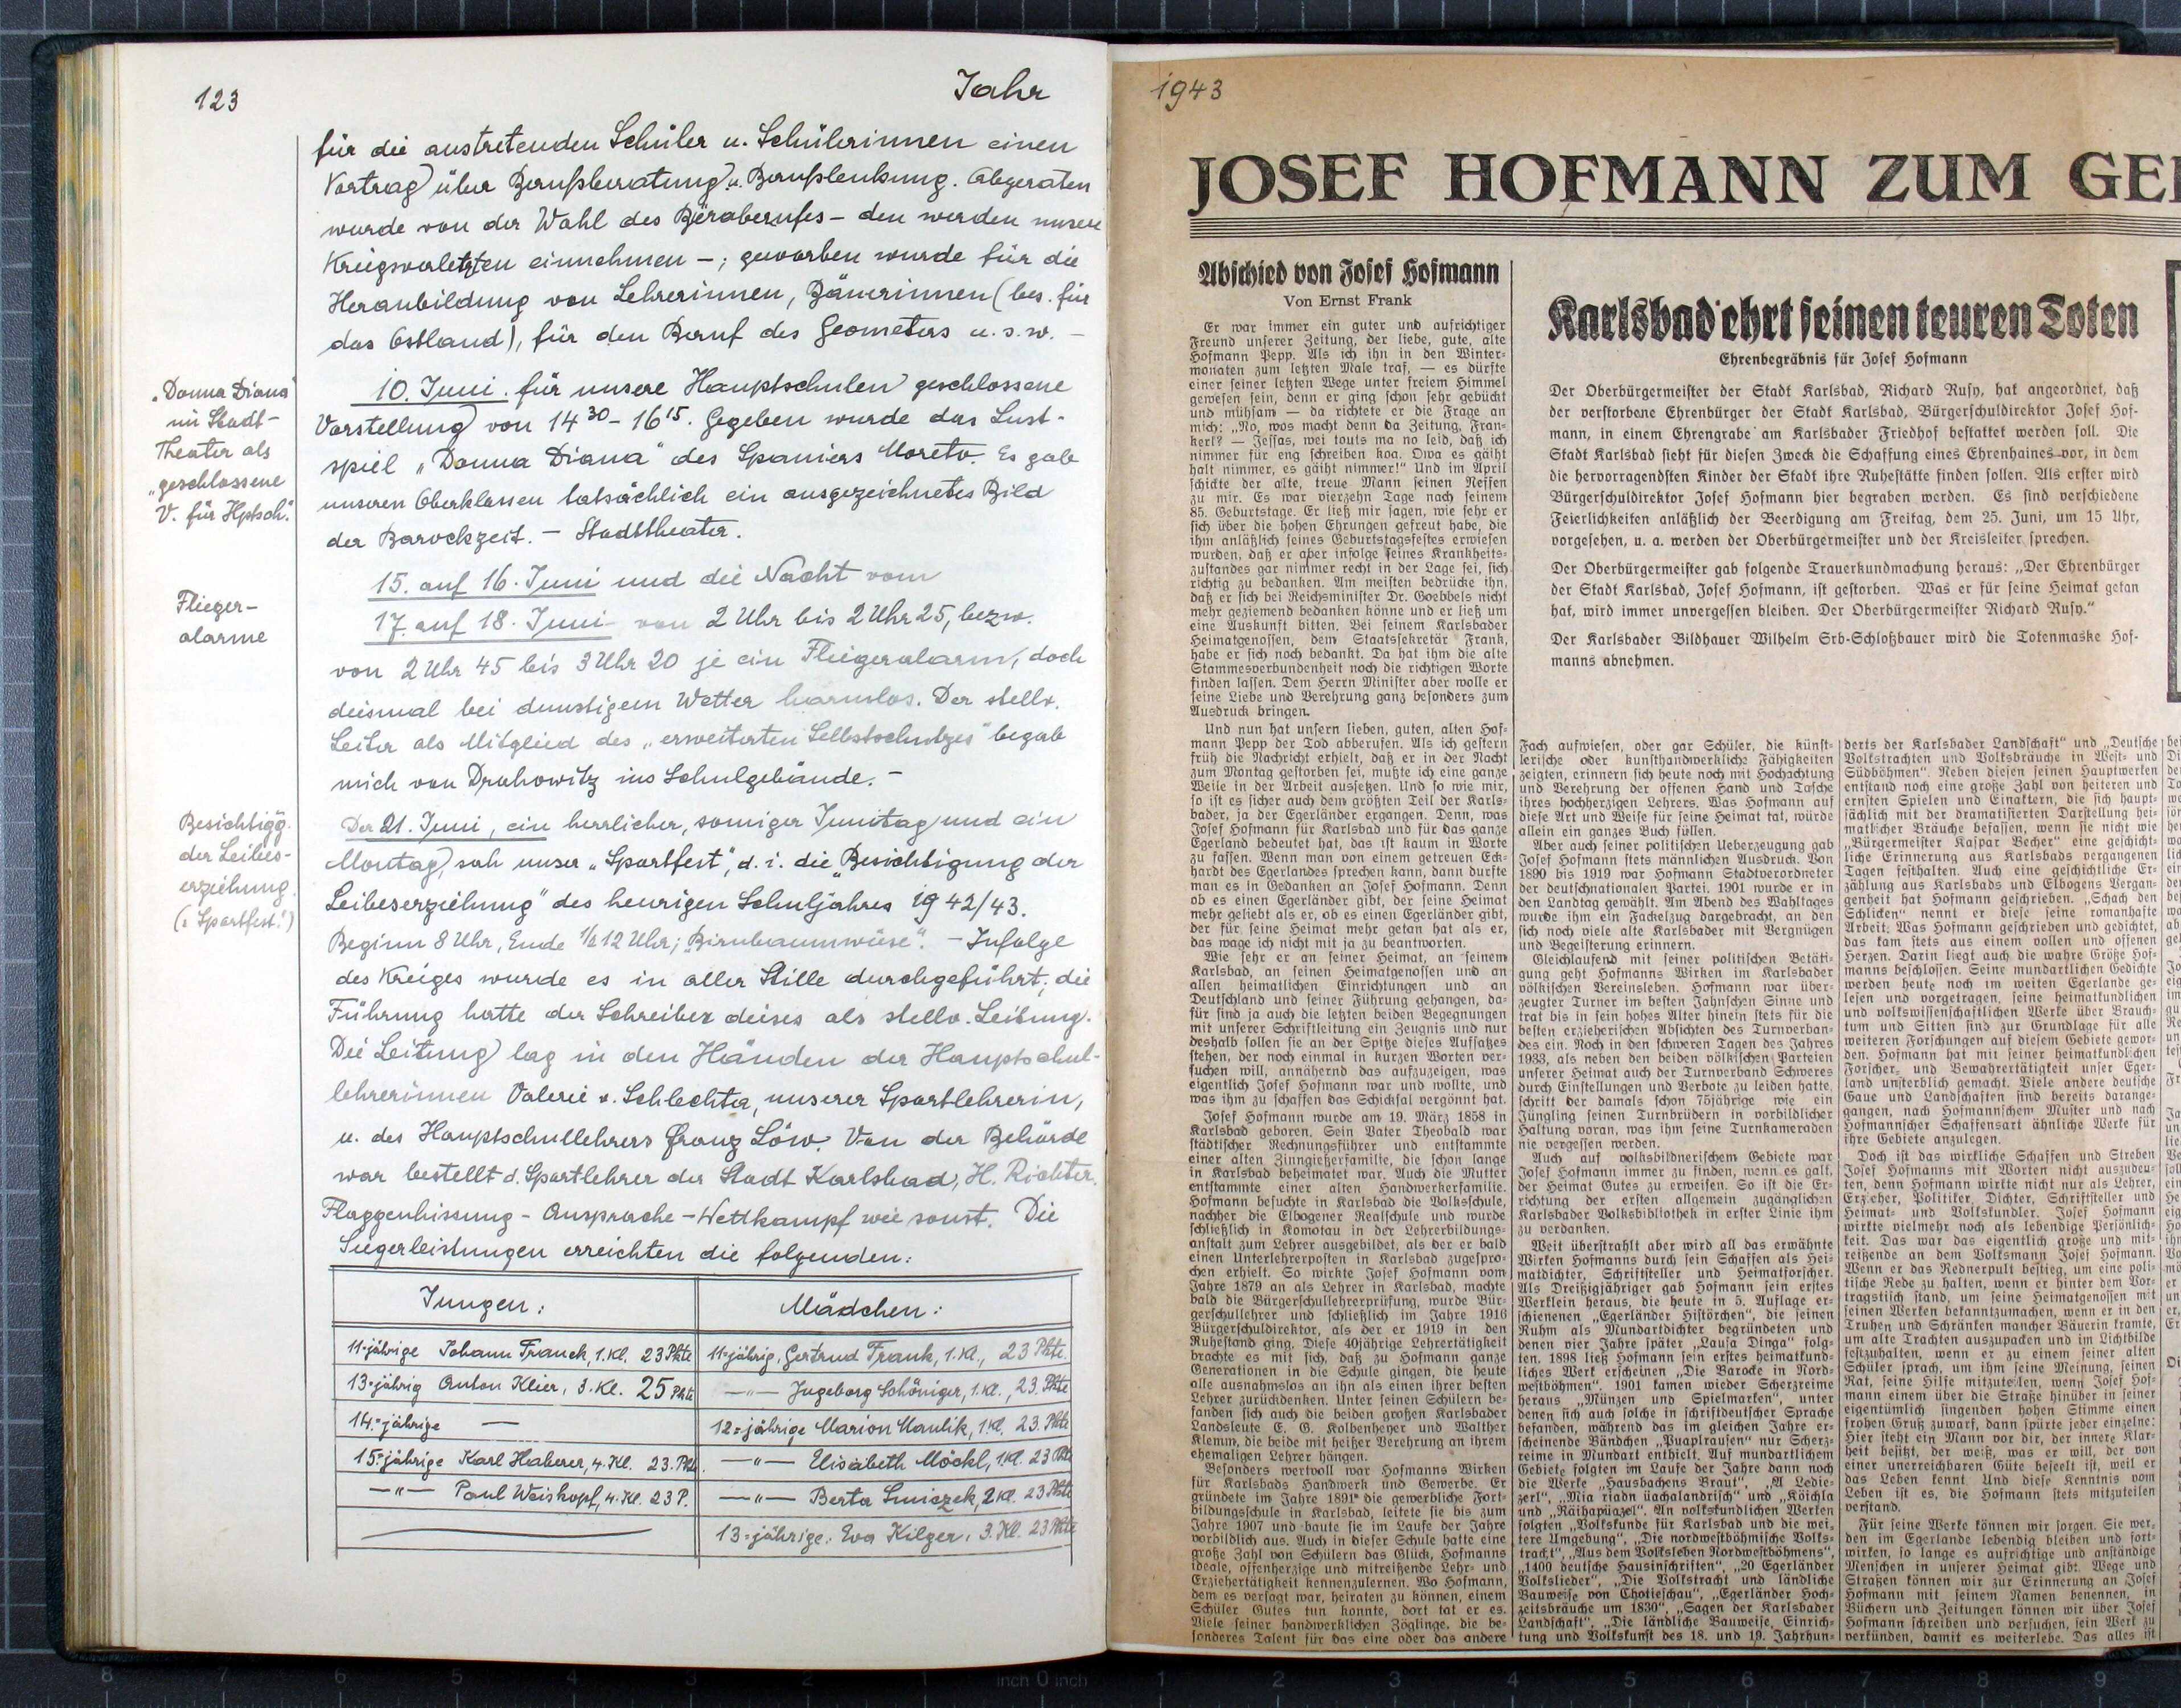 123
Jahr
für die austretenden Schüler u. Schülerinnen einen
Vortrag über Berufsberatung u. Berufslenkung. Abgeraten
wurde von der Wahl des Büroberufes – den werden unsere
Kriegsverletzten einnehmen –; geworben wurde für die
Heranbildung von Lehrerinnen, Bäuerinnen (bes. für
das Ostland), für den Beruf des Geometers u. s. w. –
„Donna Diana"
im Stadt-
Theater als
„geschlossene
V. für Hptsch."
10. Juni. für unsere Hauptschulen geschlossene
Vorstellung von 14³⁰ – 16¹⁵. Gegeben wurde das Lust-
spiel „Donna Diana" des Spaniers Moreto. Es gab
unseren Oberklassen tatsächlich ein ausgezeichnetes Bild
der Barockzeit. – Stadttheater.
Flieger-
alarme
15. auf 16. Juni und die Nacht vom
17. auf 18. Juni von 2 Uhr bis 2 Uhr 25, bezw.
von 2 Uhr 45 bis 3 Uhr 20 je ein Fliegeralarm, doch
diesmal bei dunstigem Wetter harmlos. Der stellv.
Leiter als Mitglied des „erweiterten Selbstschutzes" begab
mich von Drahowitz ins Schulgebäude. –
Besichtigg.
der Leibes-
erziehung.
(„Sportfest.")
Der 21. Juni, ein herrlicher, sonniger Junitag und ein
Montag, sah unser „Sportfest", d. i. die „Besichtigung der
Leibeserziehung" des heurigen Schuljahres 1942/43.
Beginn 8 Uhr, Ende ½ 12 Uhr; „Birnbaumwiese". – Infolge
des Krieges wurde es in aller Stille durchgeführt; die
Führung hatte der Schreiber dieses als stellv. Leitung.
Die Leitung lag in den Händen der Hauptschul-
lehrerinnen Valerie v. Schlechta, unserer Sportlehrerin,
u. des Hauptschullehrers Franz Löw. Von der Behörde
war bestellt d. Sportlehrer der Stadt Karlsbad, H. Richter.
Flaggenhissung – Ansprache – Wettkampf wie sonst. Die
Siegerleistungen erreichten die folgenden:
Jungen: Mädchen:
11-jährige Johann Franck, 1. Kl. 23 Pkte 11-jährig. Gertrud Frank, 1. Kl., 23 Pkte.
13-jährig Anton Klier, 3. Kl. 25 Pkte —"— Ingeborg Schöniger, 1. Kl., 23. Pkte
14-jährige — 12-jährige Marion Maulik, 1. Kl. 23. Pkte
15-jährige Karl Haberer, 4. Kl. 23. Pkte. —"— Elisabeth Möckl, 1. Kl. 23 Pkte
—"— Paul Weiskopf, 4. Kl. 23 P. —"— Berta Smiczek, 2 Kl. 23 Pkte
13-jährige: Eva Kilger, 3. Kl. 23 Pkte
1943
JOSEF HOFMANN ZUM GE
Abschied von Josef Hofmann
Von Ernst Frank
Er war immer ein guter und aufrichtiger
Freund unserer Zeitung, der liebe, gute, alte
Hofmann Pepp. Als ich ihn in den Winter-
monaten zum letzten Male traf, — es dürfte
einer seiner letzten Wege unter freiem Himmel
gewesen sein, denn er ging schon sehr gebückt
und mühsam — da richtete er die Frage an
mich: „No, wos macht denn da Zeitung, Fran-
kerl? — Jessas, wei touts ma no leid, daß ich
nimmer für eng schreiben koa. Owa es gäiht
halt nimmer, es gäiht nimmer!" Und im April
schickte der alte, treue Mann seinen Neffen
zu mir. Es war vierzehn Tage nach seinem
85. Geburtstage. Er ließ mir sagen, wie sehr er
sich über die hohen Ehrungen gefreut habe, die
ihm anläßlich seines Geburtstagsfestes erwiesen
wurden, daß er aber infolge seines Krankheits-
zustandes gar nimmer recht in der Lage sei, sich
richtig zu bedanken. Am meisten bedrücke ihn,
daß er sich bei Reichsminister Dr. Goebbels nicht
mehr geziemend bedanken könne und er ließ um
eine Auskunft bitten. Bei seinem Karlsbader
Heimatgenossen, dem Staatssekretär Frank,
habe er sich noch bedankt. Da hat ihm die alte
Stammesverbundenheit noch die richtigen Worte
finden lassen. Dem Herrn Minister aber wolle er
seine Liebe und Verehrung ganz besonders zum
Ausdruck bringen.
Und nun hat unsern lieben, guten, alten Hof-
mann Pepp der Tod abberufen. Als ich gestern
früh die Nachricht erhielt, daß er in der Nacht
zum Montag gestorben sei, mußte ich eine ganze
Weile in der Arbeit aussetzen. Und so wie mir,
so ist es sicher auch dem größten Teil der Karls-
bader, ja der Egerländer ergangen. Denn, was
Josef Hofmann für Karlsbad und für das ganze
Egerland bedeutet hat, das ist kaum in Worte
zu fassen. Wenn man von einem getreuen Eck-
hardt des Egerlandes sprechen kann, dann durfte
man es in Gedanken an Josef Hofmann. Denn
ob es einen Egerländer gibt, der seine Heimat
mehr geliebt als er, ob es einen Egerländer gibt,
der für seine Heimat mehr getan hat als er,
das wage ich nicht mit ja zu beantworten.
Wie sehr er an seiner Heimat, an seinem
Karlsbad, an seinen Heimatgenossen und an
allen heimatlichen Einrichtungen und an
Deutschland und seiner Führung gehangen, da-
für sind ja auch die letzten beiden Begegnungen
mit unserer Schriftleitung ein Zeugnis und nur
deshalb sollen sie an der Spitze dieses Aufsatzes
stehen, der noch einmal in kurzen Worten ver-
suchen will, annähernd das aufzuzeigen, was
eigentlich Josef Hofmann war und wollte, und
was ihm zu schaffen das Schicksal vergönnt hat.
Josef Hofmann wurde am 19. März 1858 in
Karlsbad geboren. Sein Vater Theobald war
städtischer Rechnungsführer und entstammte
einer alten Zinngießerfamilie, die schon lange
in Karlsbad beheimatet war. Auch die Mutter
entstammte einer alten Handwerkerfamilie.
Hofmann besuchte in Karlsbad die Volksschule,
nachher die Elbogener Realschule und wurde
schließlich in Komotau in der Lehrerbildungs-
anstalt zum Lehrer ausgebildet, als der er bald
einen Unterlehrerposten in Karlsbad zugespro-
chen erhielt. So wirkte Josef Hofmann vom
Jahre 1879 an als Lehrer in Karlsbad, machte
bald die Bürgerschullehrerprüfung, wurde Bür-
gerschullehrer und schließlich im Jahre 1916
Bürgerschuldirektor, als der er 1919 in den
Ruhestand ging. Diese 40jährige Lehrertätigkeit
brachte es mit sich, daß zu Hofmann ganze
Generationen in die Schule gingen, die heute
alle ausnahmslos an ihn als einen ihrer besten
Lehrer zurückdenken. Unter seinen Schülern be-
fanden sich auch die beiden großen Karlsbader
Landsleute E. G. Kolbenheyer und Walther
Klemm, die beide mit heißer Verehrung an ihrem
ehemaligen Lehrer hängen.
Besonders wertvoll war Hofmanns Wirken
für Karlsbads Handwerk und Gewerbe. Er
gründete im Jahre 1891 die gewerbliche Fort-
bildungsschule in Karlsbad, leitete sie bis zum
Jahre 1907 und baute sie im Laufe der Jahre
vorbildlich aus. Auch in dieser Schule hatte eine
große Zahl von Schülern das Glück, Hofmanns
ideale, offenherzige und mitreißende Lehr- und
Erziehertätigkeit kennenzulernen. Wo Hofmann,
dem es versagt war, heiraten zu können, einem
Schüler Gutes tun konnte, dort tat er es.
Viele seiner handwerklichen Zöglinge, die be-
sonderes Talent für das eine oder das andere
Karlsbad ehrt seinen teuren Toten
Ehrenbegräbnis für Josef Hofmann
Der Oberbürgermeister der Stadt Karlsbad, Richard Rusy, hat angeordnet, daß
der verstorbene Ehrenbürger der Stadt Karlsbad, Bürgerschuldirektor Josef Hof-
mann, in einem Ehrengrabe am Karlsbader Friedhof bestattet werden soll. Die
Stadt Karlsbad sieht für diesen Zweck die Schaffung eines Ehrenhaines vor, in dem
die hervorragendsten Kinder der Stadt ihre Ruhestätte finden sollen. Als erster wird
Bürgerschuldirektor Josef Hofmann hier begraben werden. Es sind verschiedene
Feierlichkeiten anläßlich der Beerdigung am Freitag, dem 25. Juni, um 15 Uhr,
vorgesehen, u. a. werden der Oberbürgermeister und der Kreisleiter sprechen.
Der Oberbürgermeister gab folgende Trauerkundmachung heraus: „Der Ehrenbürger
der Stadt Karlsbad, Josef Hofmann, ist gestorben. Was er für seine Heimat getan
hat, wird immer unvergessen bleiben. Der Oberbürgermeister Richard Rusy."
Der Karlsbader Bildhauer Wilhelm Srb-Schloßbauer wird die Totenmaske Hof-
manns abnehmen.
Fach aufwiesen, oder gar Schüler, die künst-
lerische oder kunsthandwerkliche Fähigkeiten
zeigten, erinnern sich heute noch mit Hochachtung
und Verehrung der offenen Hand und Tasche
ihres hochherzigen Lehrers. Was Hofmann auf
diese Art und Weise für seine Heimat tat, würde
allein ein ganzes Buch füllen.
Aber auch seiner politischen Ueberzeugung gab
Josef Hofmann stets männlichen Ausdruck. Von
1890 bis 1919 war Hofmann Stadtverordneter
der deutschnationalen Partei. 1901 wurde er in
den Landtag gewählt. Am Abend des Wahltages
wurde ihm ein Fackelzug dargebracht, an den
sich noch viele alte Karlsbader mit Vergnügen
und Begeisterung erinnern.
Gleichlaufend mit seiner politischen Betäti-
gung geht Hofmanns Wirken im Karlsbader
völkischen Vereinsleben. Hofmann war über-
zeugter Turner im besten Jahnschen Sinne und
trat bis in sein hohes Alter hinein stets für die
besten erzieherischen Absichten des Turnverban-
des ein. Noch in den schweren Tagen des Jahres
1933, als neben den beiden völkischen Parteien
unserer Heimat auch der Turnverband Schweres
durch Einstellungen und Verbote zu leiden hatte,
schritt der damals schon 75jährige wie ein
Jüngling seinen Turnbrüdern in vorbildlicher
Haltung voran, was ihm seine Turnkameraden
nie vergessen werden.
Auch auf volksbildnerischem Gebiete war
Josef Hofmann immer zu finden, wenn es galt,
der Heimat Gutes zu erweisen. So ist die Er-
richtung der ersten allgemein zugänglichen
Karlsbader Volksbibliothek in erster Linie ihm
zu verdanken.
Weit überstrahlt aber wird all das erwähnte
Wirken Hofmanns durch sein Schaffen als Hei-
matdichter, Schriftsteller und Heimatforscher.
Als Dreißigjähriger gab Hofmann sein erstes
Werklein heraus, die heute in 5. Auflage er-
schienenen „Egerländer Histörchen", die seinen
Ruhm als Mundartdichter begründeten und
denen vier Jahre später „Lausa Dinga" folg-
ten. 1898 ließ Hofmann sein erstes heimatkund-
liches Werk erscheinen „Die Barocke in Nord-
westböhmen". 1901 kamen wieder Scherzreime
heraus „Münzen und Spielmarken", unter
denen sich auch solche in schriftdeutscher Sprache
befanden, während das im gleichen Jahre er-
scheinende Bändchen „Puaplraufen" nur Scherz-
reime in Mundart enthielt. Auf mundartlichem
Gebiete folgten im Laufe der Jahre dann noch
die Werke „Hausbachens Braut", „A Ledie-
zerl", „Mia riadn üachalandrisch" und „Köichla
und Räihapüazel". An volkskundlichen Werken
folgten „Volkskunde für Karlsbad und die wei-
tere Umgebung", „Die nordwestböhmische Volks-
tracht", „Aus dem Volksleben Nordwestböhmens",
„1400 deutsche Hausinschriften", „20 Egerländer
Volkslieder", „Die Volkstracht und ländliche
Bauweise von Chotieschau", „Egerländer Hoch-
zeitsbräuche um 1830", „Sagen der Karlsbader
Landschaft", „Die ländliche Bauweise, Einrich-
tung und Volkskunst des 18. und 19. Jahrhun-
derts der Karlsbader Landschaft" und „Deutsche
Volkstrachten und Volksbräuche in West- und
Südböhmen". Neben diesen seinen Hauptwerken
entstand noch eine große Zahl von heiteren und
ernsten Spielen und Einaktern, die sich haupt-
sächlich mit der dramatisierten Darstellung hei-
matlicher Bräuche befassen, wenn sie nicht wie
„Bürgermeister Kaspar Becher" eine geschicht-
liche Erinnerung aus Karlsbads vergangenen
Tagen festhalten. Auch eine geschichtliche Er-
zählung aus Karlsbads und Elbogens Vergan-
genheit hat Hofmann geschrieben. „Schach den
Schlicken" nennt er diese seine romanhafte
Arbeit. Was Hofmann geschrieben und gedichtet,
das kam stets aus einem vollen und offenen
Herzen. Darin liegt auch die wahre Größe Hof-
manns beschlossen. Seine mundartlichen Gedichte
werden heute noch im weiten Egerlande ge-
lesen und vorgetragen, seine heimatkundlichen
und volkswissenschaftlichen Werke über Brauch-
tum und Sitten sind zur Grundlage für alle
weiteren Forschungen auf diesem Gebiete gewor-
den. Hofmann hat mit seiner heimatkundlichen
Forscher- und Bewahrertätigkeit unser Eger-
land unsterblich gemacht. Viele andere deutsche
Gaue und Landschaften sind bereits darange-
gangen, nach Hofmannschem Muster und nach
Hofmannscher Schaffensart ähnliche Werke für
ihre Gebiete anzulegen.
Doch ist das wirkliche Schaffen und Streben
Josef Hofmanns mit Worten nicht auszudeu-
ten, denn Hofmann wirkte nicht nur als Lehrer,
Erzieher, Politiker, Dichter, Schriftsteller und
Heimat- und Volkskundler. Josef Hofmann
wirkte vielmehr noch als lebendige Persönlich-
keit. Das war das eigentlich große und mit-
reißende an dem Volksmann Josef Hofmann.
Wenn er das Rednerpult bestieg, um eine poli-
tische Rede zu halten, wenn er hinter dem Vor-
tragstisch stand, um seine Heimatgenossen mit
seinen Werken bekanntzumachen, wenn er in den
Truhen und Schränken mancher Bäuerin kramte,
um alte Trachten auszupacken und im Lichtbilde
festzuhalten, wenn er zu einem seiner alten
Schüler sprach, um ihm seine Meinung, seinen
Rat, seine Hilfe mitzuteilen, wenn Josef Hof-
mann einem über die Straße hinüber in seiner
eigentümlich singenden hohen Stimme einen
frohen Gruß zuwarf, dann spürte jeder einzelne:
Hier steht ein Mann vor dir, der innere Klar-
heit besitzt, der weiß, was er will, der von
einer unerreichbaren Güte beseelt ist, weil er
das Leben kennt. Und diese Kenntnis vom
Leben ist es, die Hofmann stets mitzuteilen
verstand.
Für seine Werke können wir sorgen. Sie wer-
den im Egerlande lebendig bleiben und fort-
wirken, so lange es aufrichtige und anständige
Menschen in unserer Heimat gibt. Wege und
Straßen können wir zur Erinnerung an Josef
Hofmann mit seinem Namen benennen, in
Büchern und Zeitungen können wir über Josef
Hofmann schreiben und versuchen, sein Werk zu
verkünden, damit es weiterlebe. Das alles ist
8 7 6 5 4 3 2 1 inch 0 inch 1 2 3 4 5 6 7 8 9